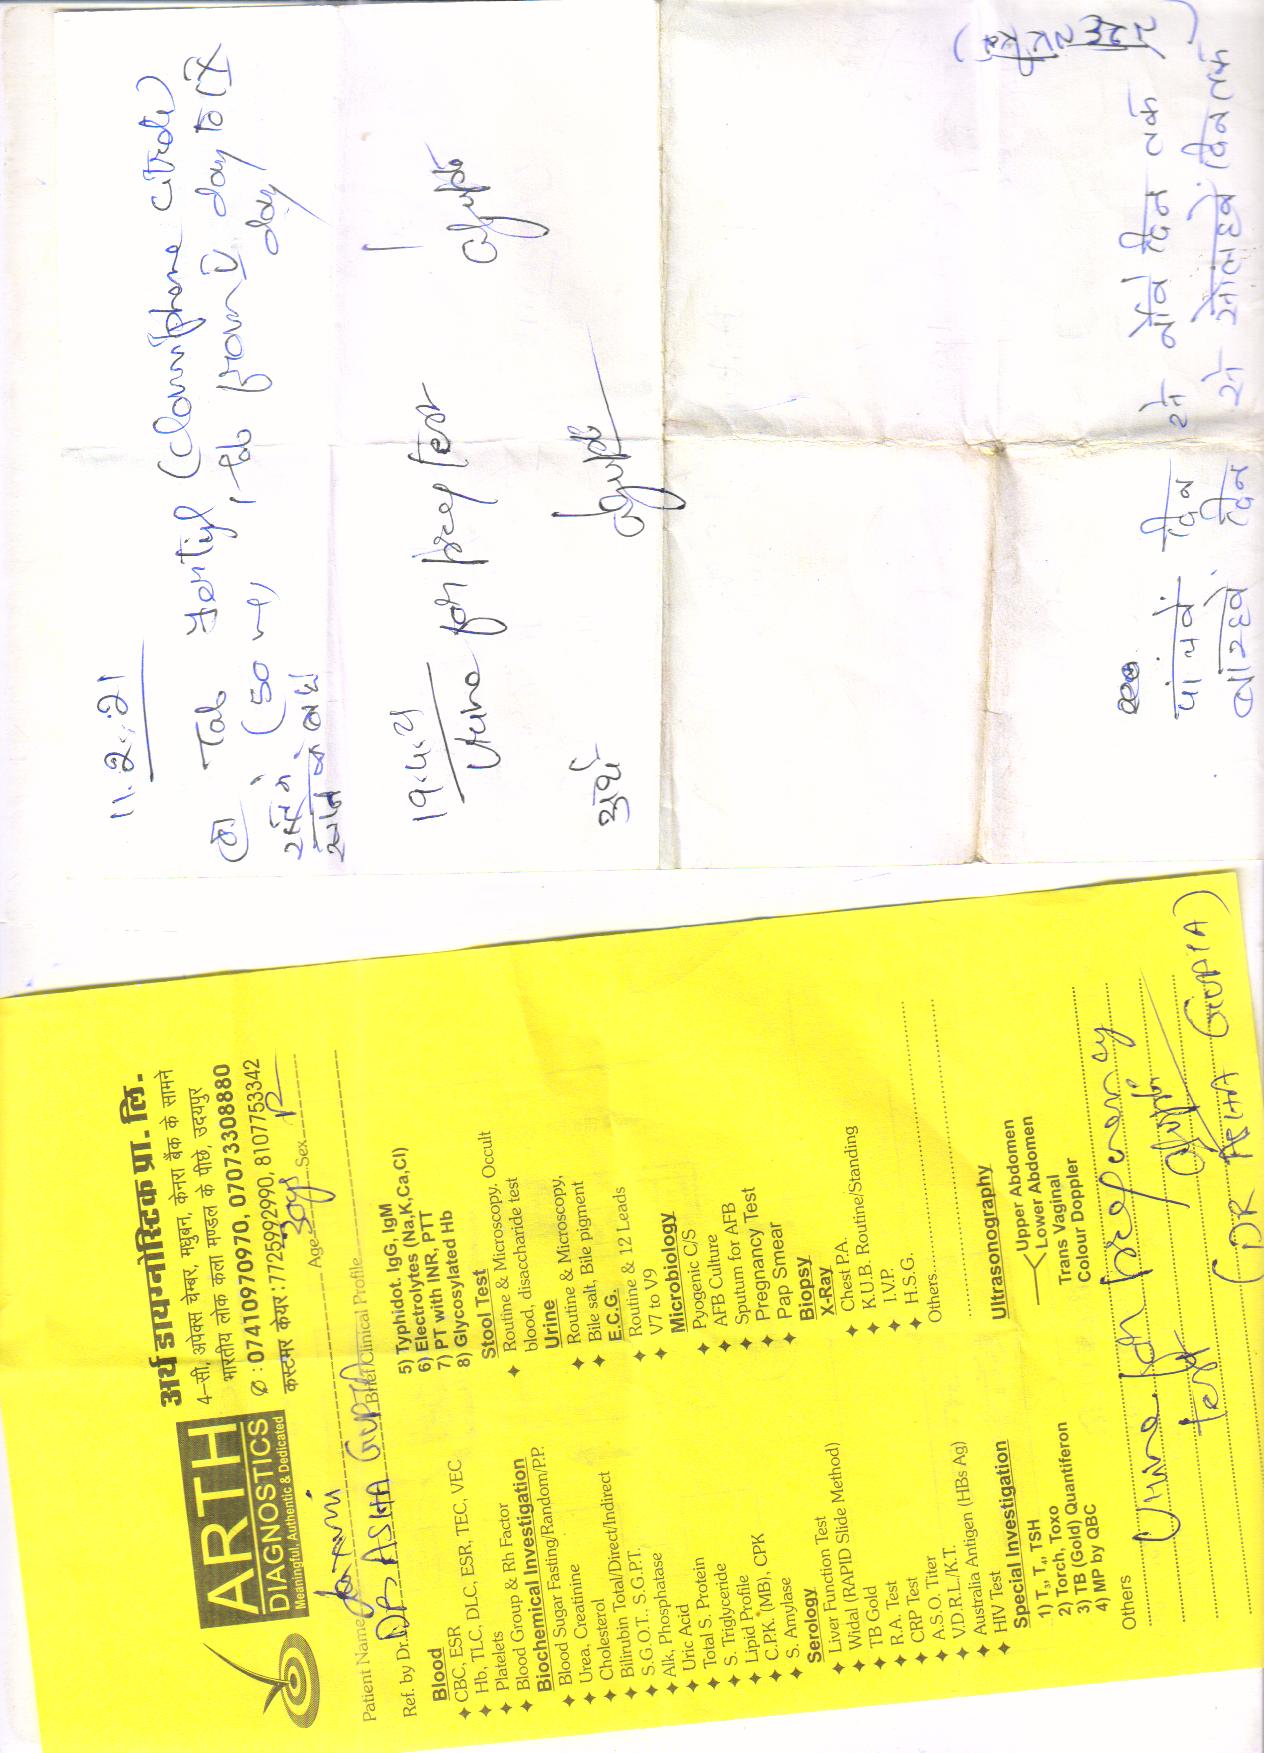 11.2.21
Tab Fertyl (Clomiphene citrate)
(50 mg) 1 tab from V day to IX
day
रात में
खाने के बाद
19.4.21
Urine for preg test
AGupta
AGupta
सुबह
पांचवें दिन से नौवें दिन तक
बारहवें दिन से सोलहवें दिन तक
ARTH
DIAGNOSTICS
Meaningful, Authentic & Dedicated
अर्थ डायग्नोस्टिक प्रा. लि.
4-सी, अपेक्स चेम्बर, मधुबन, केनरा बैंक के सामने
भारतीय लोक कला मण्डल के पीछे, उदयपुर
✆ : 07410970970, 07073308880
कस्टमर केयर : 7725992990, 8107753342
Patient Name Age 30ys Sex
Ref. by Dr. DR ASHA GUPTA Brief Clinical Profile
Blood
CBC, ESR
Hb, TLC, DLC, ESR, TEC, VEC
Platelets
Blood Group & Rh Factor
Biochemical Investigation
Blood Sugar Fasting/Random/P.P.
Urea, Creatinine
Cholesterol
Bilirubin Total/Direct/Indirect
S.G.O.T.. S.G.P.T.
Alk, Phosphatase
Uric Acid
Total S. Protein
S. Triglyceride
Lipid Profile
C.P.K. (MB), CPK
S. Amylase
Serology
Liver Function Test
Widal (RAPID Slide Method)
TB Gold
R.A. Test
CRP Test
A.S.O. Titer
V.D.R.L./K.T.
Australia Antigen (HBs Ag)
HIV Test
Special Investigation
1) T3, T4, TSH
2) Torch, Toxo
3) TB (Gold) Quantiferon
4) MP by QBC
5) Typhidot. IgG, IgM
6) Electrolytes (Na,K,Ca,Cl)
7) PT with INR, PTT
8) Glycosylated Hb
Stool Test
Routine & Microscopy, Occult
blood, disaccharide test
Urine
Routine & Microscopy,
Bile salt, Bile pigment
E.C.G.
Routine & 12 Leads
V7 to V9
Microbiology
Pyogenic C/S
AFB Culture
Sputum for AFB
Pregnancy Test
Pap Smear
Biopsy
X-Ray
Chest P.A.
K.U.B. Routine/Standing
I.V.P.
H.S.G.
Others
Ultrasonography
Upper Abdomen
Lower Abdomen
Trans Vaginal
Colour Doppler
Others
Urine for pregnancy
test
AGupta
(DR ASHA GUPTA)